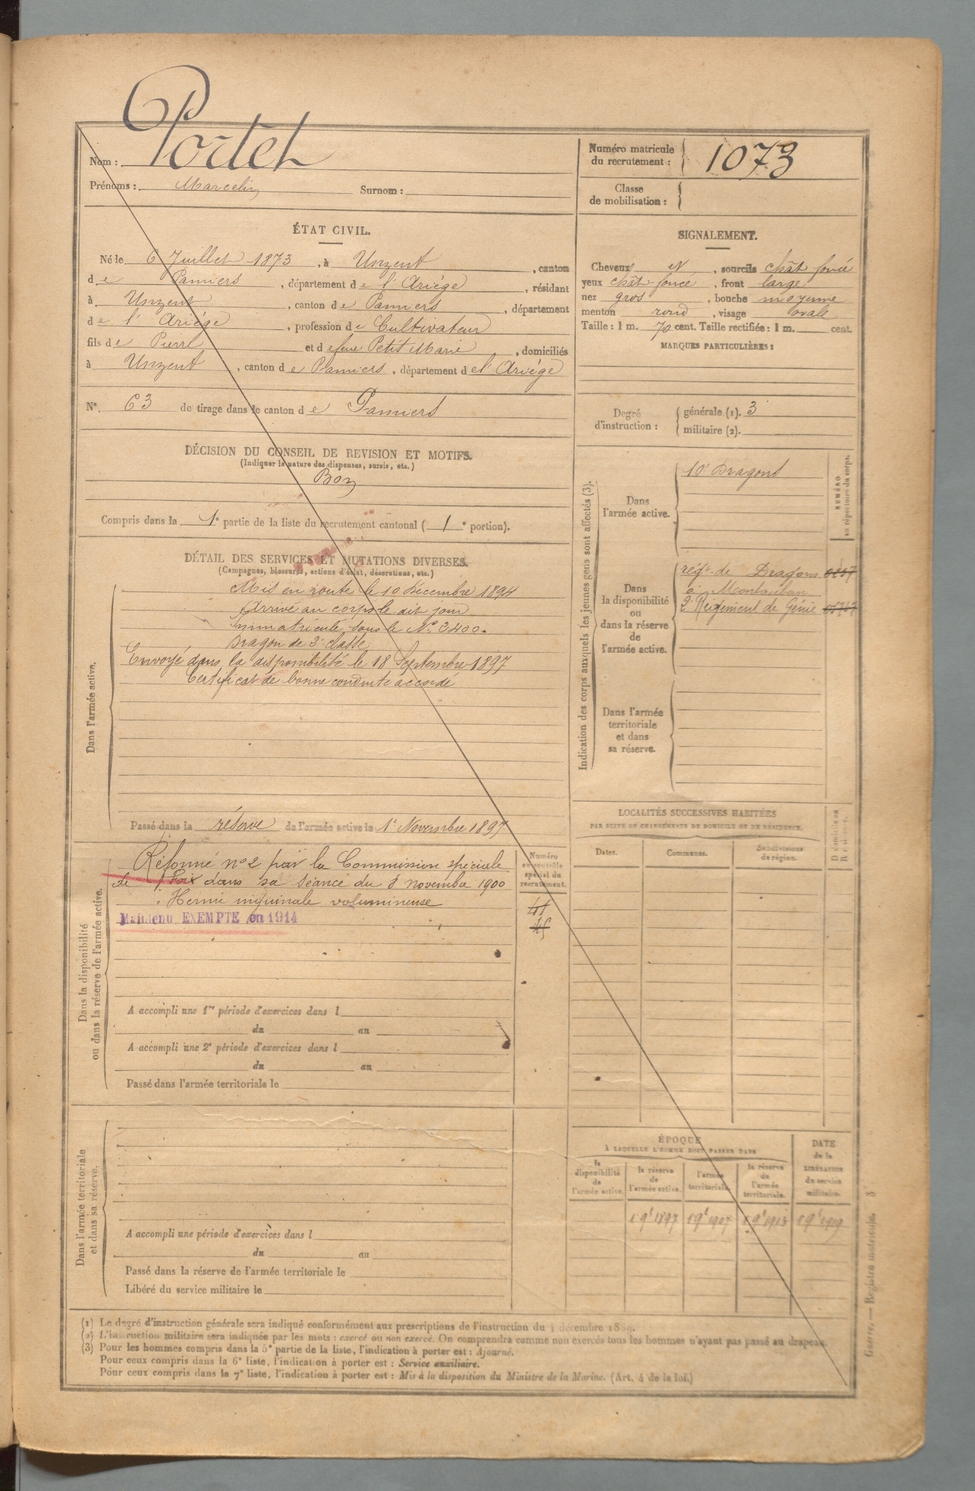 Nom : Portet
Prénoms : Marcelin Surnom :
Numéro matricule du recrutement : 1073
Classe de mobilisation :
ÉTAT CIVIL.
Né le 6 Juillet 1873, à Unzent, canton
de Pamiers, département de l'Ariége, résidant
à Unzent, canton de Pamiers, département
de l'Ariége, profession de Cultivateur
fils de Pierre et de feue Petit Marie, domiciliés
à Unzent, canton de Pamiers, département de l'Ariége
N° 63 de tirage dans le canton de Pamiers
SIGNALEMENT.
Cheveux et, sourcils chât foncé
yeux chât foncé, front large
nez gros, bouche moyenne
menton rond, visage ovale
Taille : 1 m. 70 cent. Taille rectifiée : 1 m. cent.
MARQUES PARTICULIÈRES :
Degré d'instruction : générale (1). 3
militaire (2).
DÉCISION DU CONSEIL DE REVISION ET MOTIFS.
(Indiquer la nature des dispenses, sursis, etc.)
Bon
Compris dans la 1e partie de la liste du recrutement cantonal (1e portion).
Indication des corps auxquels les jeunes gens sont affectés (3).
NUMÉRO au répertoire du corps.
Dans l'armée active.
10e Dragons
Dans la disponibilité ou dans la réserve de l'armée active.
régt de Dragons
à Montauban
2e Régiment de Génie
Dans l'armée territoriale et dans sa réserve.
DÉTAIL DES SERVICES ET MUTATIONS DIVERSES.
(Campagnes, blessures, actions d'éclat, décorations, etc.)
Dans l'armée active.
Mis en route le 10 décembre 1894
Arrivé au corps le dit jour
immatriculé sous le N° 3400.
Dragon de 2e classe
Envoyé dans la disponibilité le 18 Septembre 1897
Certificat de bonne conduite accordé
Passé dans la réserve de l'armée active le 1er Novembre 1897
Dans la disponibilité ou dans la réserve de l'armée active.
Réformé n°2 par la Commission spéciale
de Foix dans sa séance du 8 novembre 1900
Hernie inguinale volumineuse
Maintenu EXEMPTE en 1914
Numéro au contrôle spécial du recrutement.
A accompli une 1re période d'exercices dans l
du au
A accompli une 2e période d'exercices dans l
du au
Passé dans l'armée territoriale le
LOCALITÉS SUCCESSIVES HABITÉES
PAR SUITE DE CHANGEMENTS DE DOMICILE OU DE RÉSIDENCE.
Dates. Communes. Subdivisions de région.
Dans l'armée territoriale et dans sa réserve.
A accompli une période d'exercices dans l
du au
Passé dans la réserve de l'armée territoriale le
Libéré du service militaire le
ÉPOQUE
À LAQUELLE L'HOMME DOIT PASSER DANS
la disponibilité de l'armée active. la réserve de l'armée active. l'armée territoriale. la réserve de l'armée territoriale.
DATE de la LIBÉRATION du service militaire.
(1) Le degré d'instruction générale sera indiqué conformément aux prescriptions de l'instruction du 4 décembre 1889.
(2) L'instruction militaire sera indiquée par les mots : exercé ou non exercé. On comprendra comme non exercés tous les hommes n'ayant pas passé au drapeau.
(3) Pour les hommes compris dans la 5e partie de la liste, l'indication à porter est : Ajourné.
Pour ceux compris dans la 6e liste, l'indication à porter est : Service auxiliaire.
Pour ceux compris dans la 7e liste, l'indication à porter est : Mis à la disposition du Ministre de la Marine. (Art. 4 de la loi.)